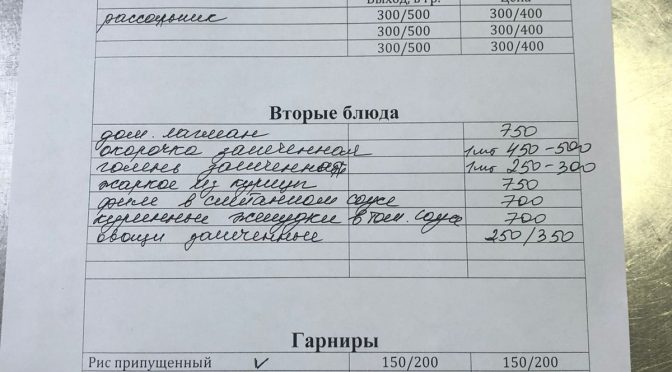 Выход, в гр. Цена
рассольник 300/500 300/400
300/500 300/400
300/500 300/400
Вторые блюда
дом. лагман 750
окорочка запеченная 1 шт 450-500
голень запеченная 1 шт 250-300
жаркое из курицы 750
филе в сметанном соусе 700
куринные желудки в том. соусе 700
овощи запеченные 250/350
Гарниры
Рис припущенный ✓ 150/200 150/200